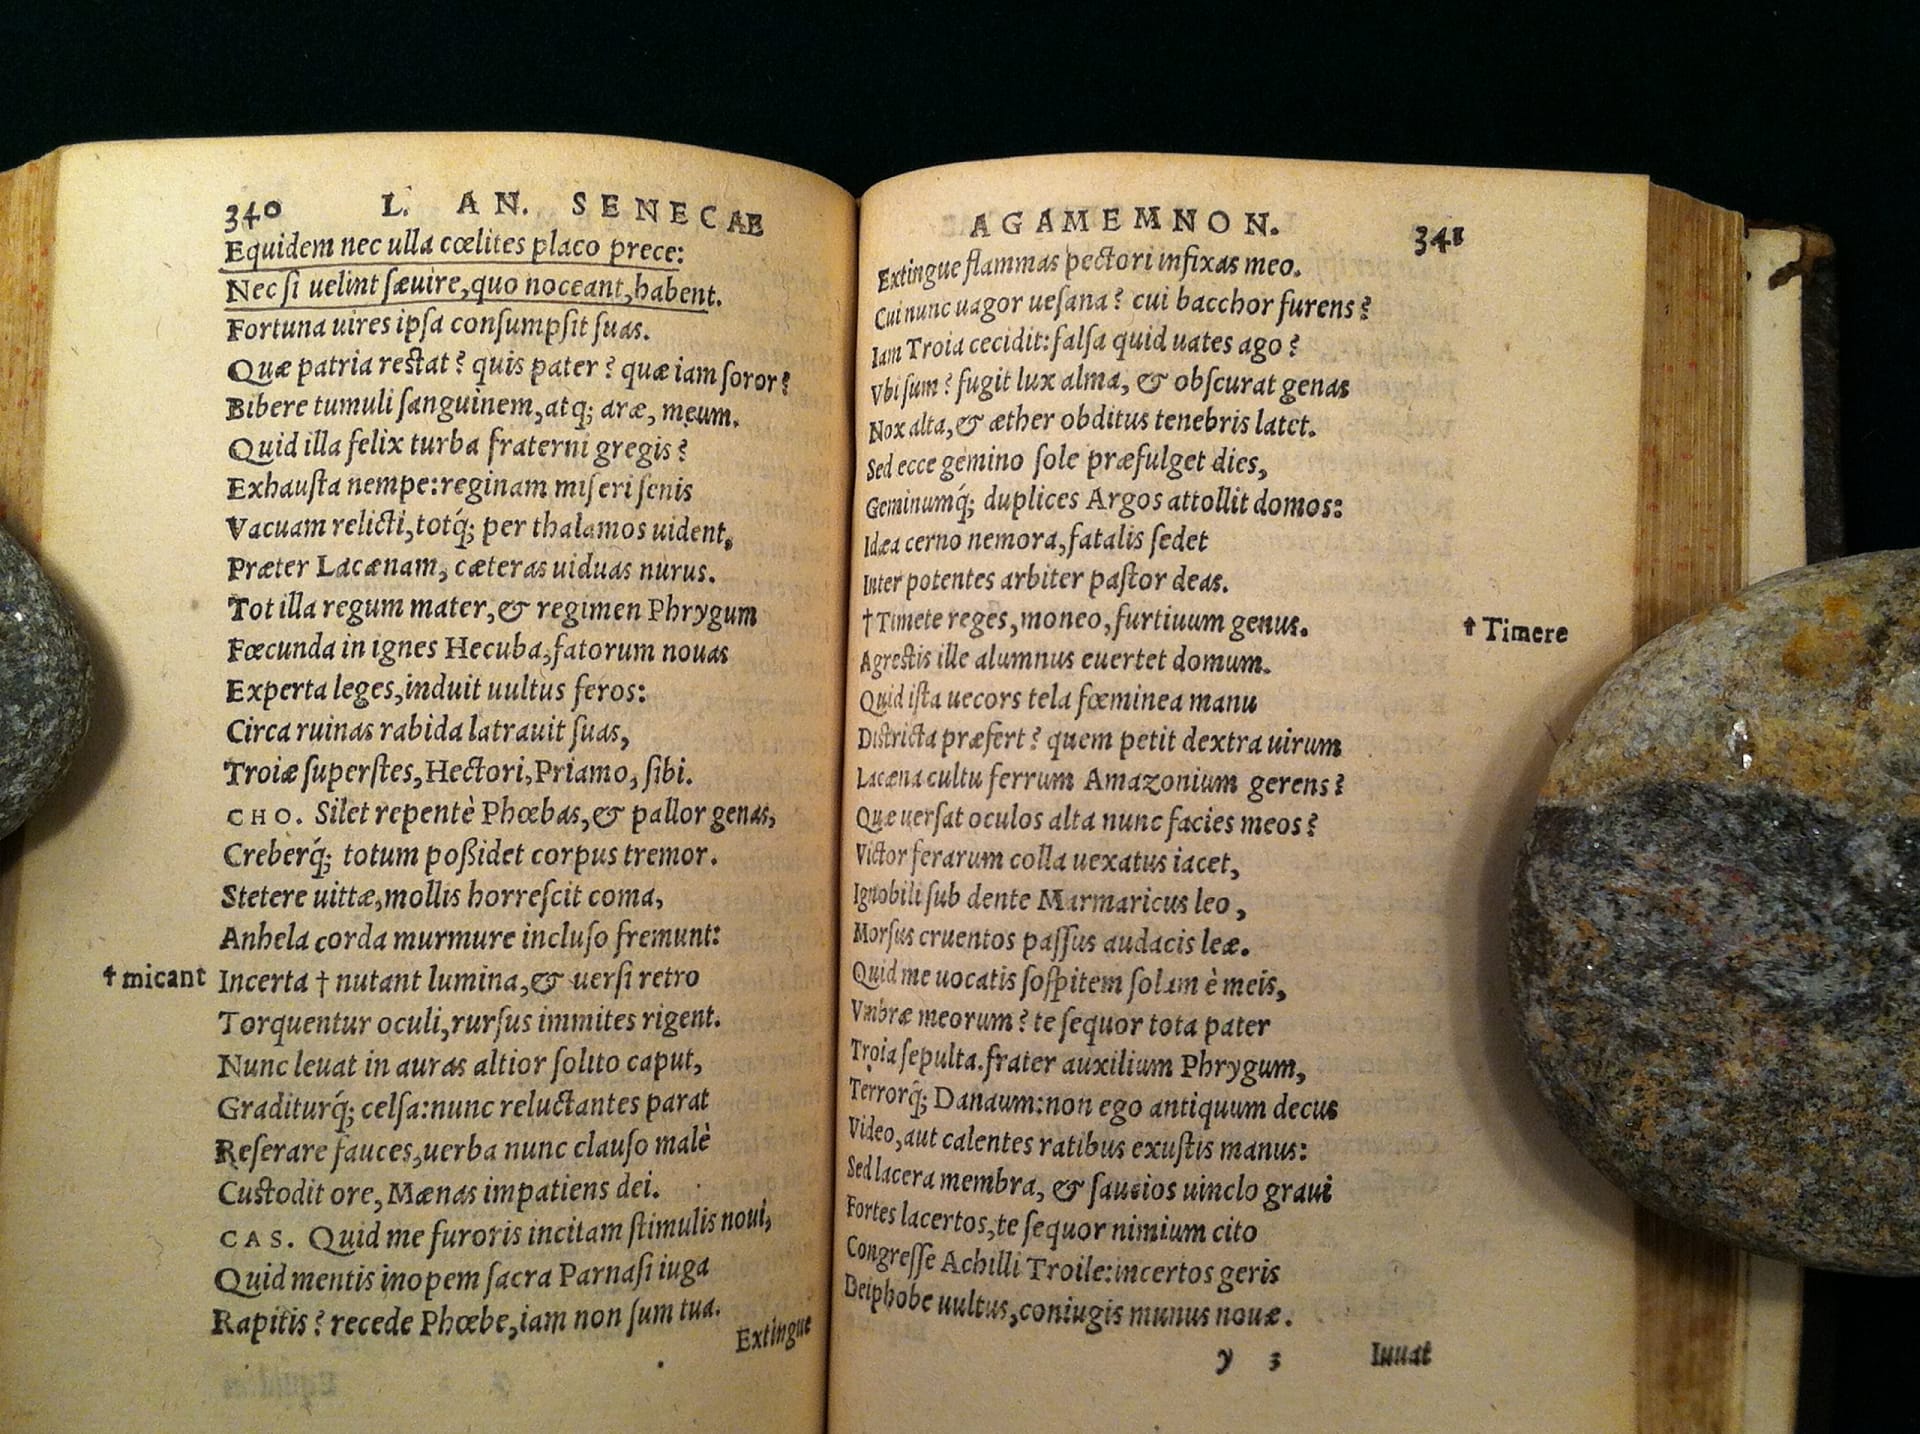 340 L. AN. SENECAE
Equidem nec ulla cœlites placo prece:
Nec ſi uelint ſæuire, quo noceant, habent.
Fortuna uires ipſa conſumpſit ſuas.
Quæ patria reſtat? quis pater? quæ iam ſoror?
Bibere tumuli ſanguinem, atq; aræ, meum.
Quid illa felix turba fraterni gregis?
Exhauſta nempe: reginam miſeri ſenis
Vacuam relicti, totq́; per thalamos uident,
Præter Lacænam, cæteras uiduas nurus.
Tot illa regum mater, & regimen Phrygum
Fœcunda in ignes Hecuba, fatorum nouas
Experta leges, induit uultus feros:
Circa ruinas rabida latrauit ſuas,
Troiæ ſuperſtes, Hectori, Priamo, ſibi.
CHO. Silet repentè Phœbas, & pallor genas,
Creberq́; totum poßidet corpus tremor.
Stetere uittæ, mollis horreſcit coma,
Anhela corda murmure incluſo fremunt:
† micant Incerta † nutant lumina, & uerſi retro
Torquentur oculi, rurſus immites rigent.
Nunc leuat in auras altior ſolito caput,
Graditurq́; celſa: nunc reluctantes parat
Reſerare fauces, uerba nunc clauſo malè
Cuſtodit ore, Mænas impatiens dei.
CAS. Quid me furoris incitam ſtimulis noui,
Quid mentis inopem ſacra Parnaſi iuga
Rapitis? recede Phœbe, iam non ſum tua.
Extingue
AGAMEMNON. 341
Extingue flammas pectori infixas meo.
Cui nunc uagor ueſana? cui bacchor furens?
Iam Troia cecidit: falſa quid uates ago?
Vbi ſum? fugit lux alma, & obſcurat genas
Nox alta, & æther obditus tenebris latet.
Sed ecce gemino ſole præfulget dies,
Geminumq́; duplices Argos attollit domos:
Idæa cerno nemora, fatalis ſedet
Inter potentes arbiter paſtor deas.
† Timete reges, moneo, furtiuum genus. † Timere
Agreſtis ille alumnus euertet domum.
Quid iſta uecors tela fœminea manu
Diſtricta præfert? quem petit dextra uirum
Lacæna cultu ferrum Amazonium gerens?
Quæ uerſat oculos alta nunc facies meos?
Victor ferarum colla uexatus iacet,
Ignobili ſub dente Marmaricus leo,
Morſus cruentos paſſus audacis leæ.
Quid me uocatis ſoſpitem ſolam è meis,
Vmbræ meorum? te ſequor tota pater
Troia ſepulta. frater auxilium Phrygum,
Terrorq́; Danaum: non ego antiquum decus
Video, aut calentes ratibus exuſtis manus:
Sed lacera membra, & ſaucios uinclo graui
Fortes lacertos, te ſequor nimium cito
Congreſſe Achilli Troile: incertos geris
Deiphobe uultus, coniugis munus nouæ.
y 3 Iuuat